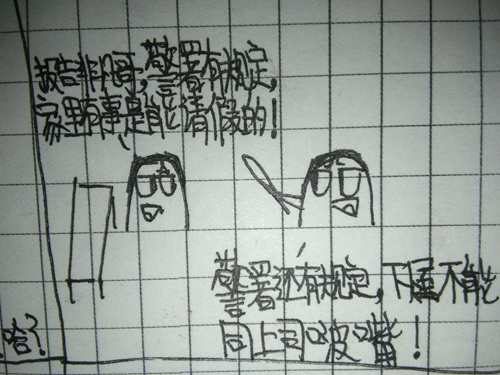 报告非凡哥,警署有规定,
家里有事是能请假的!
警署还有规定,下属不能
向上司口皮嘴!
哈!